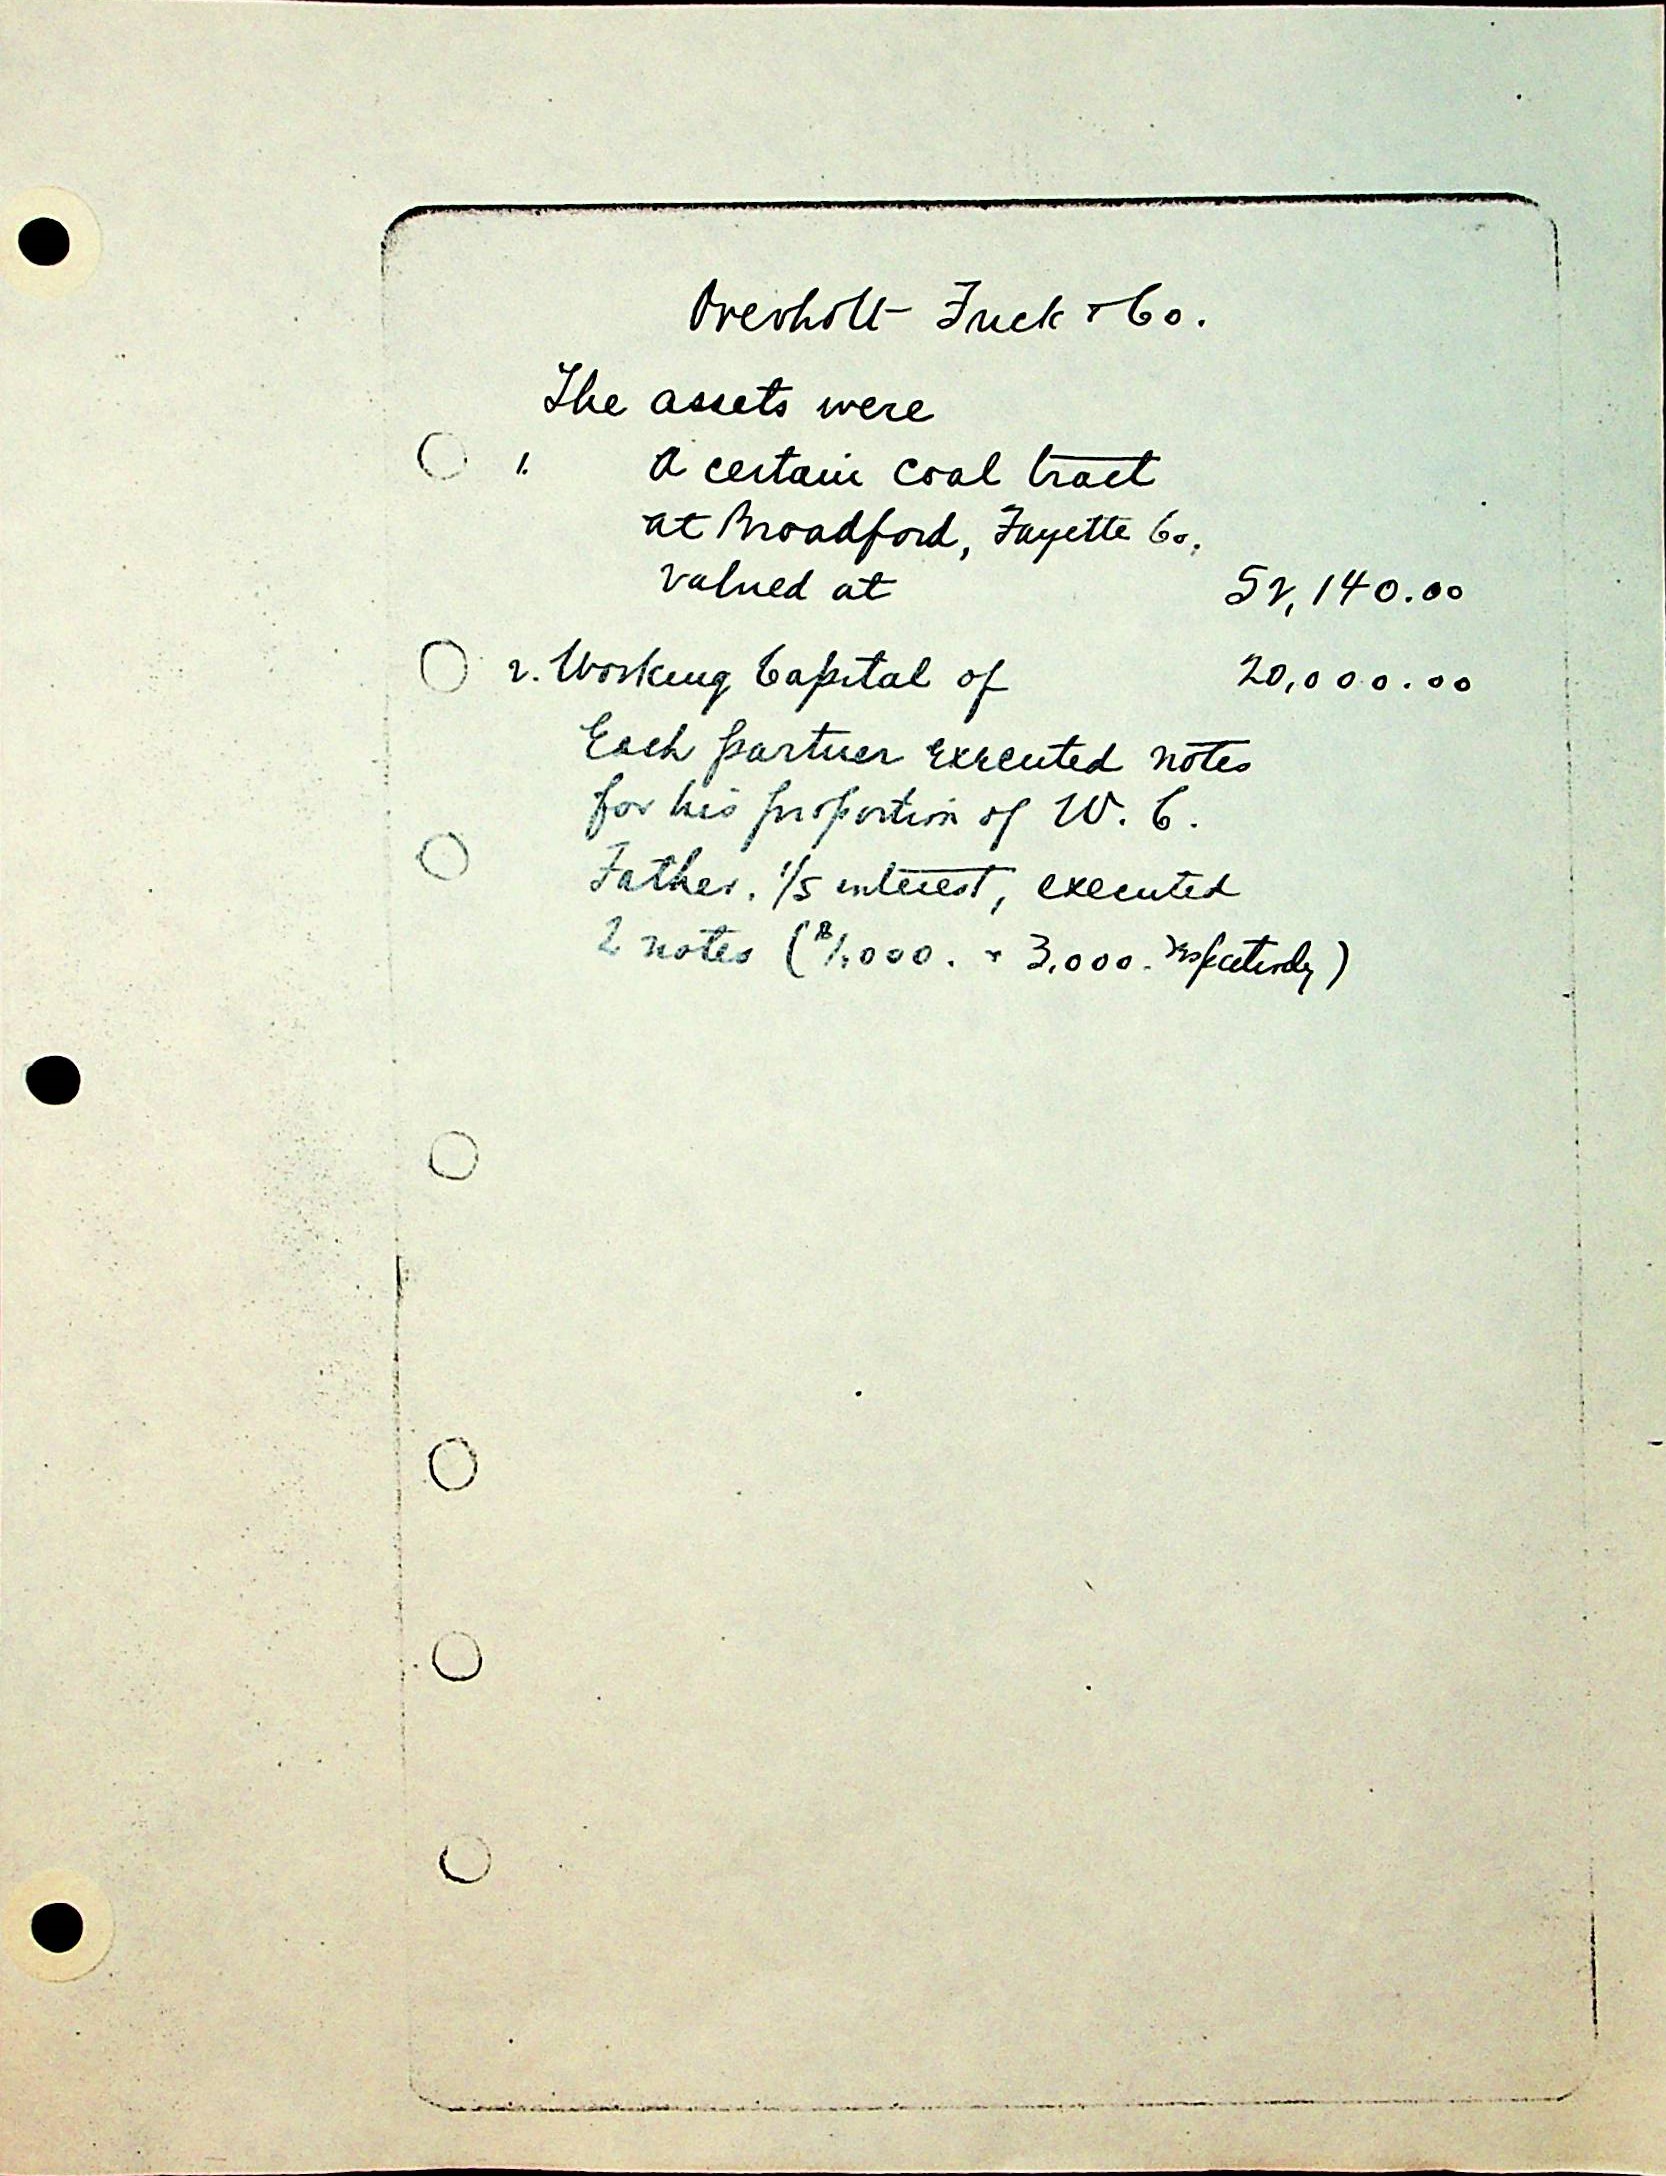 Overholt Frick & Co.
The assets were
1. A certain coal tract
at Broadford, Fayette Co.
valued at 52,140.00
2. Working Capital of 20,000.00
Each partner executed notes
for his proportion of W. C.
Father. 1/5 interest, executed
2 notes ($1,000. & 3,000. respectively)